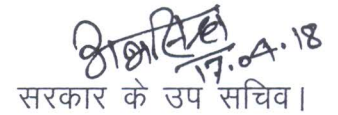 17.04.18
सरकार के उप सचिव।